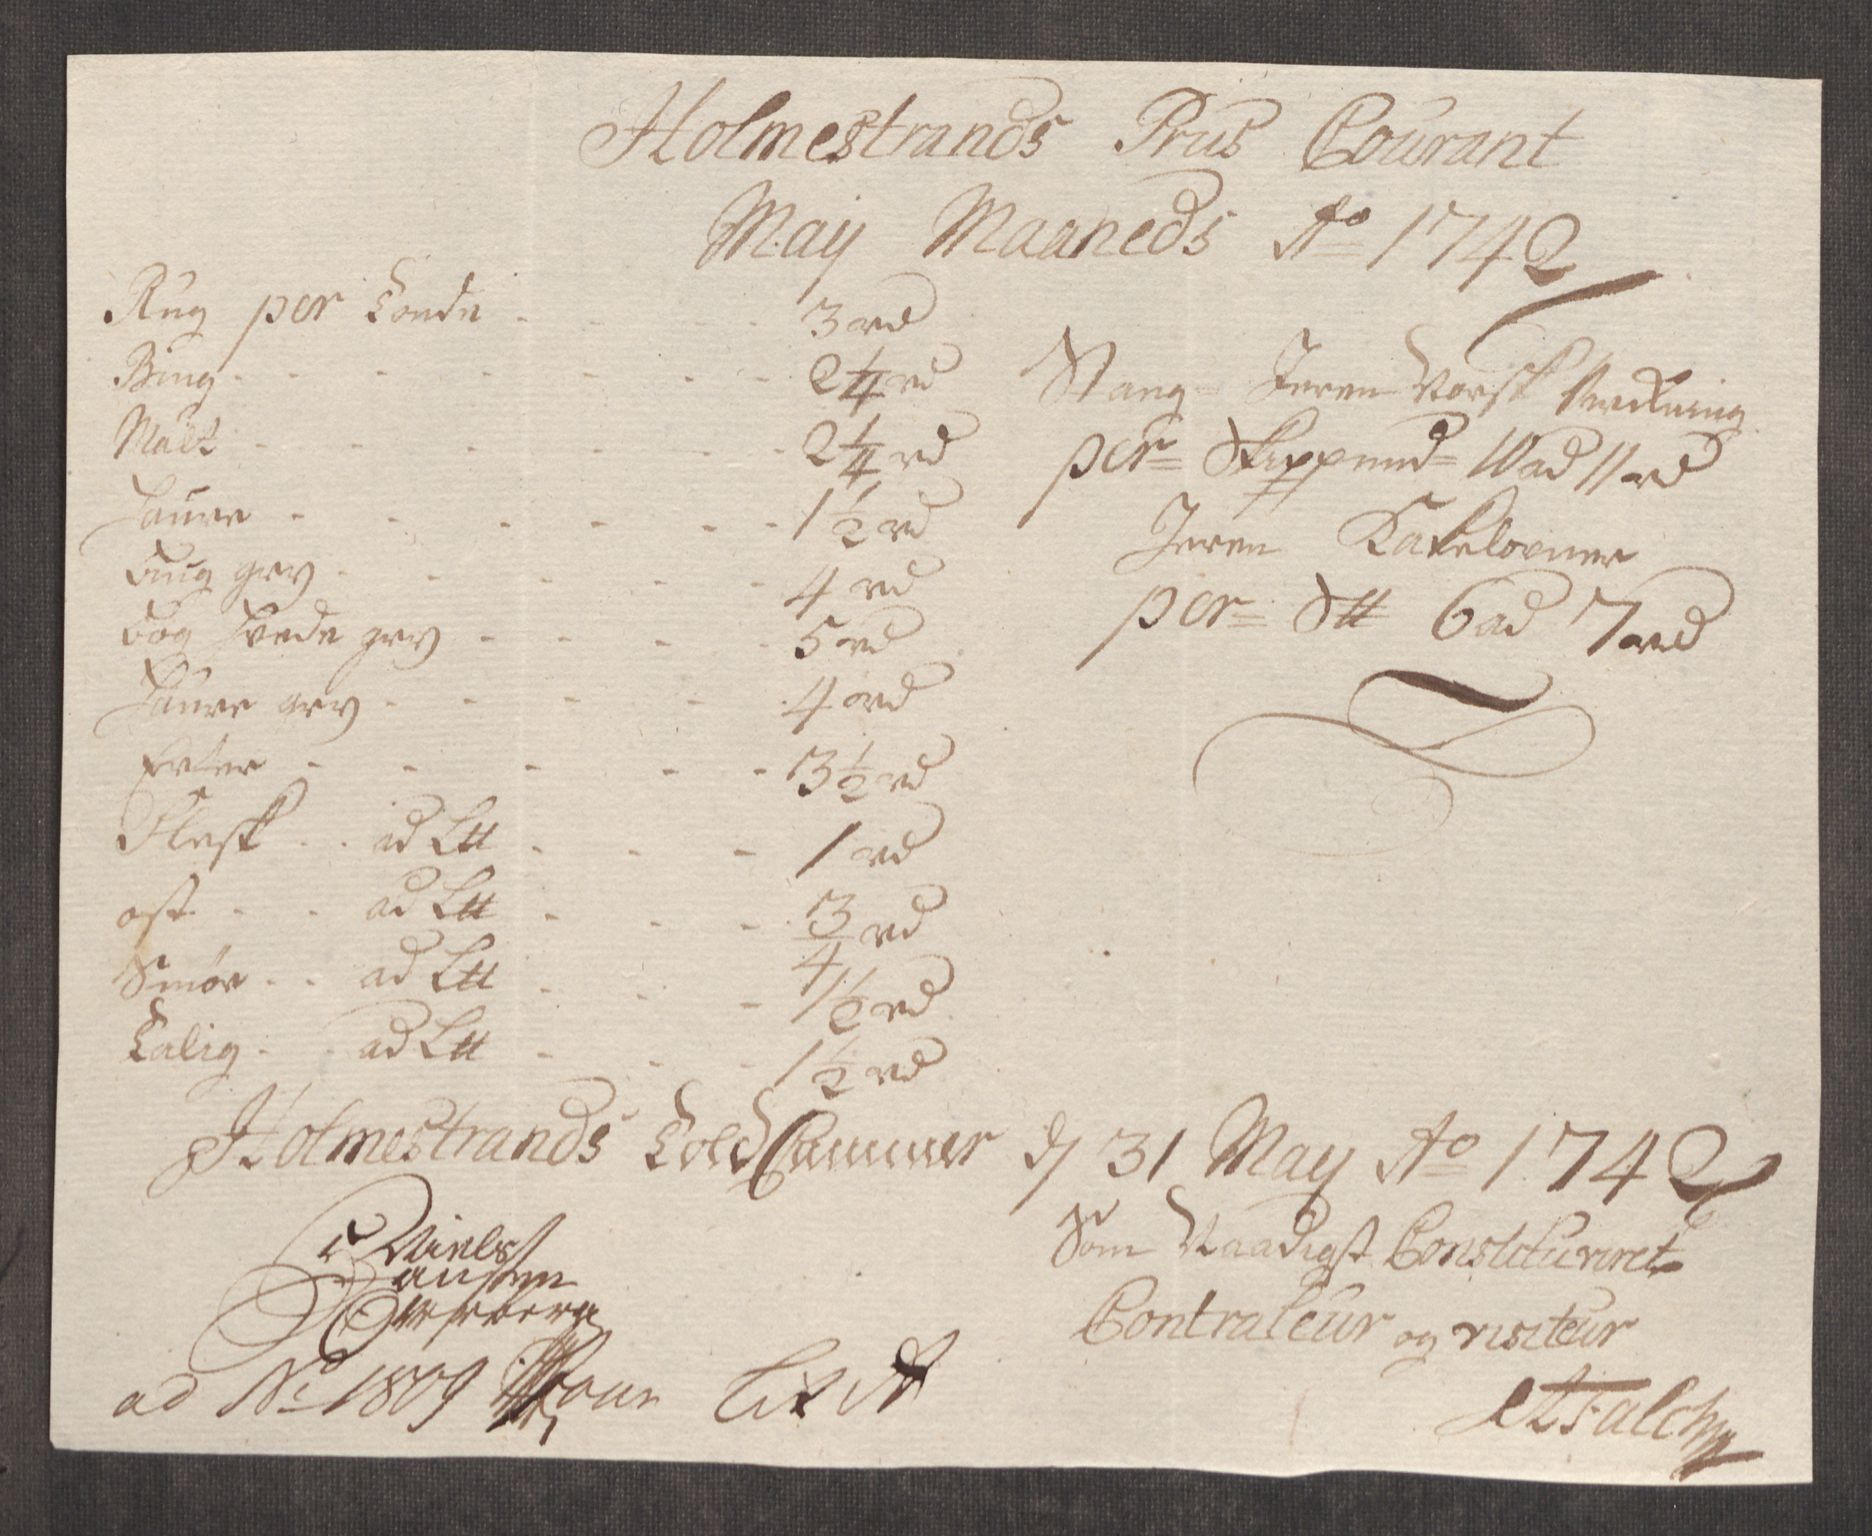 Holmestrands Prus Courant
Maij Maaneds Ao 1742
Rug per tønde 3 rd
Biug 2 1/4 rd
Malt 2 1/4 rd
Haure 1 1/2 rd
biug gryn 4 rd
bog hvede gryn 5 rd
Haure gryn 4 rd
Erter 3 1/2 rd
Flesk ad L℔ 1 rd
ost ad L℔ 3/4 rd
Smør ad L℔ 1 1/2 rd
Talig ad L℔ 1 1/2 rd
Stang Jeren Norsk Virkning
per Skippund 10 ad 11 rd
Jeren Kakelovner
per S℔ 6 ad 7 rd
Holmestrands Told Cammer d 31 May Ao 1742
Niels
Hansen
Som Naadigst Constitueret
Contraleur og visiteur
Falch
ad No 1809 Lit A